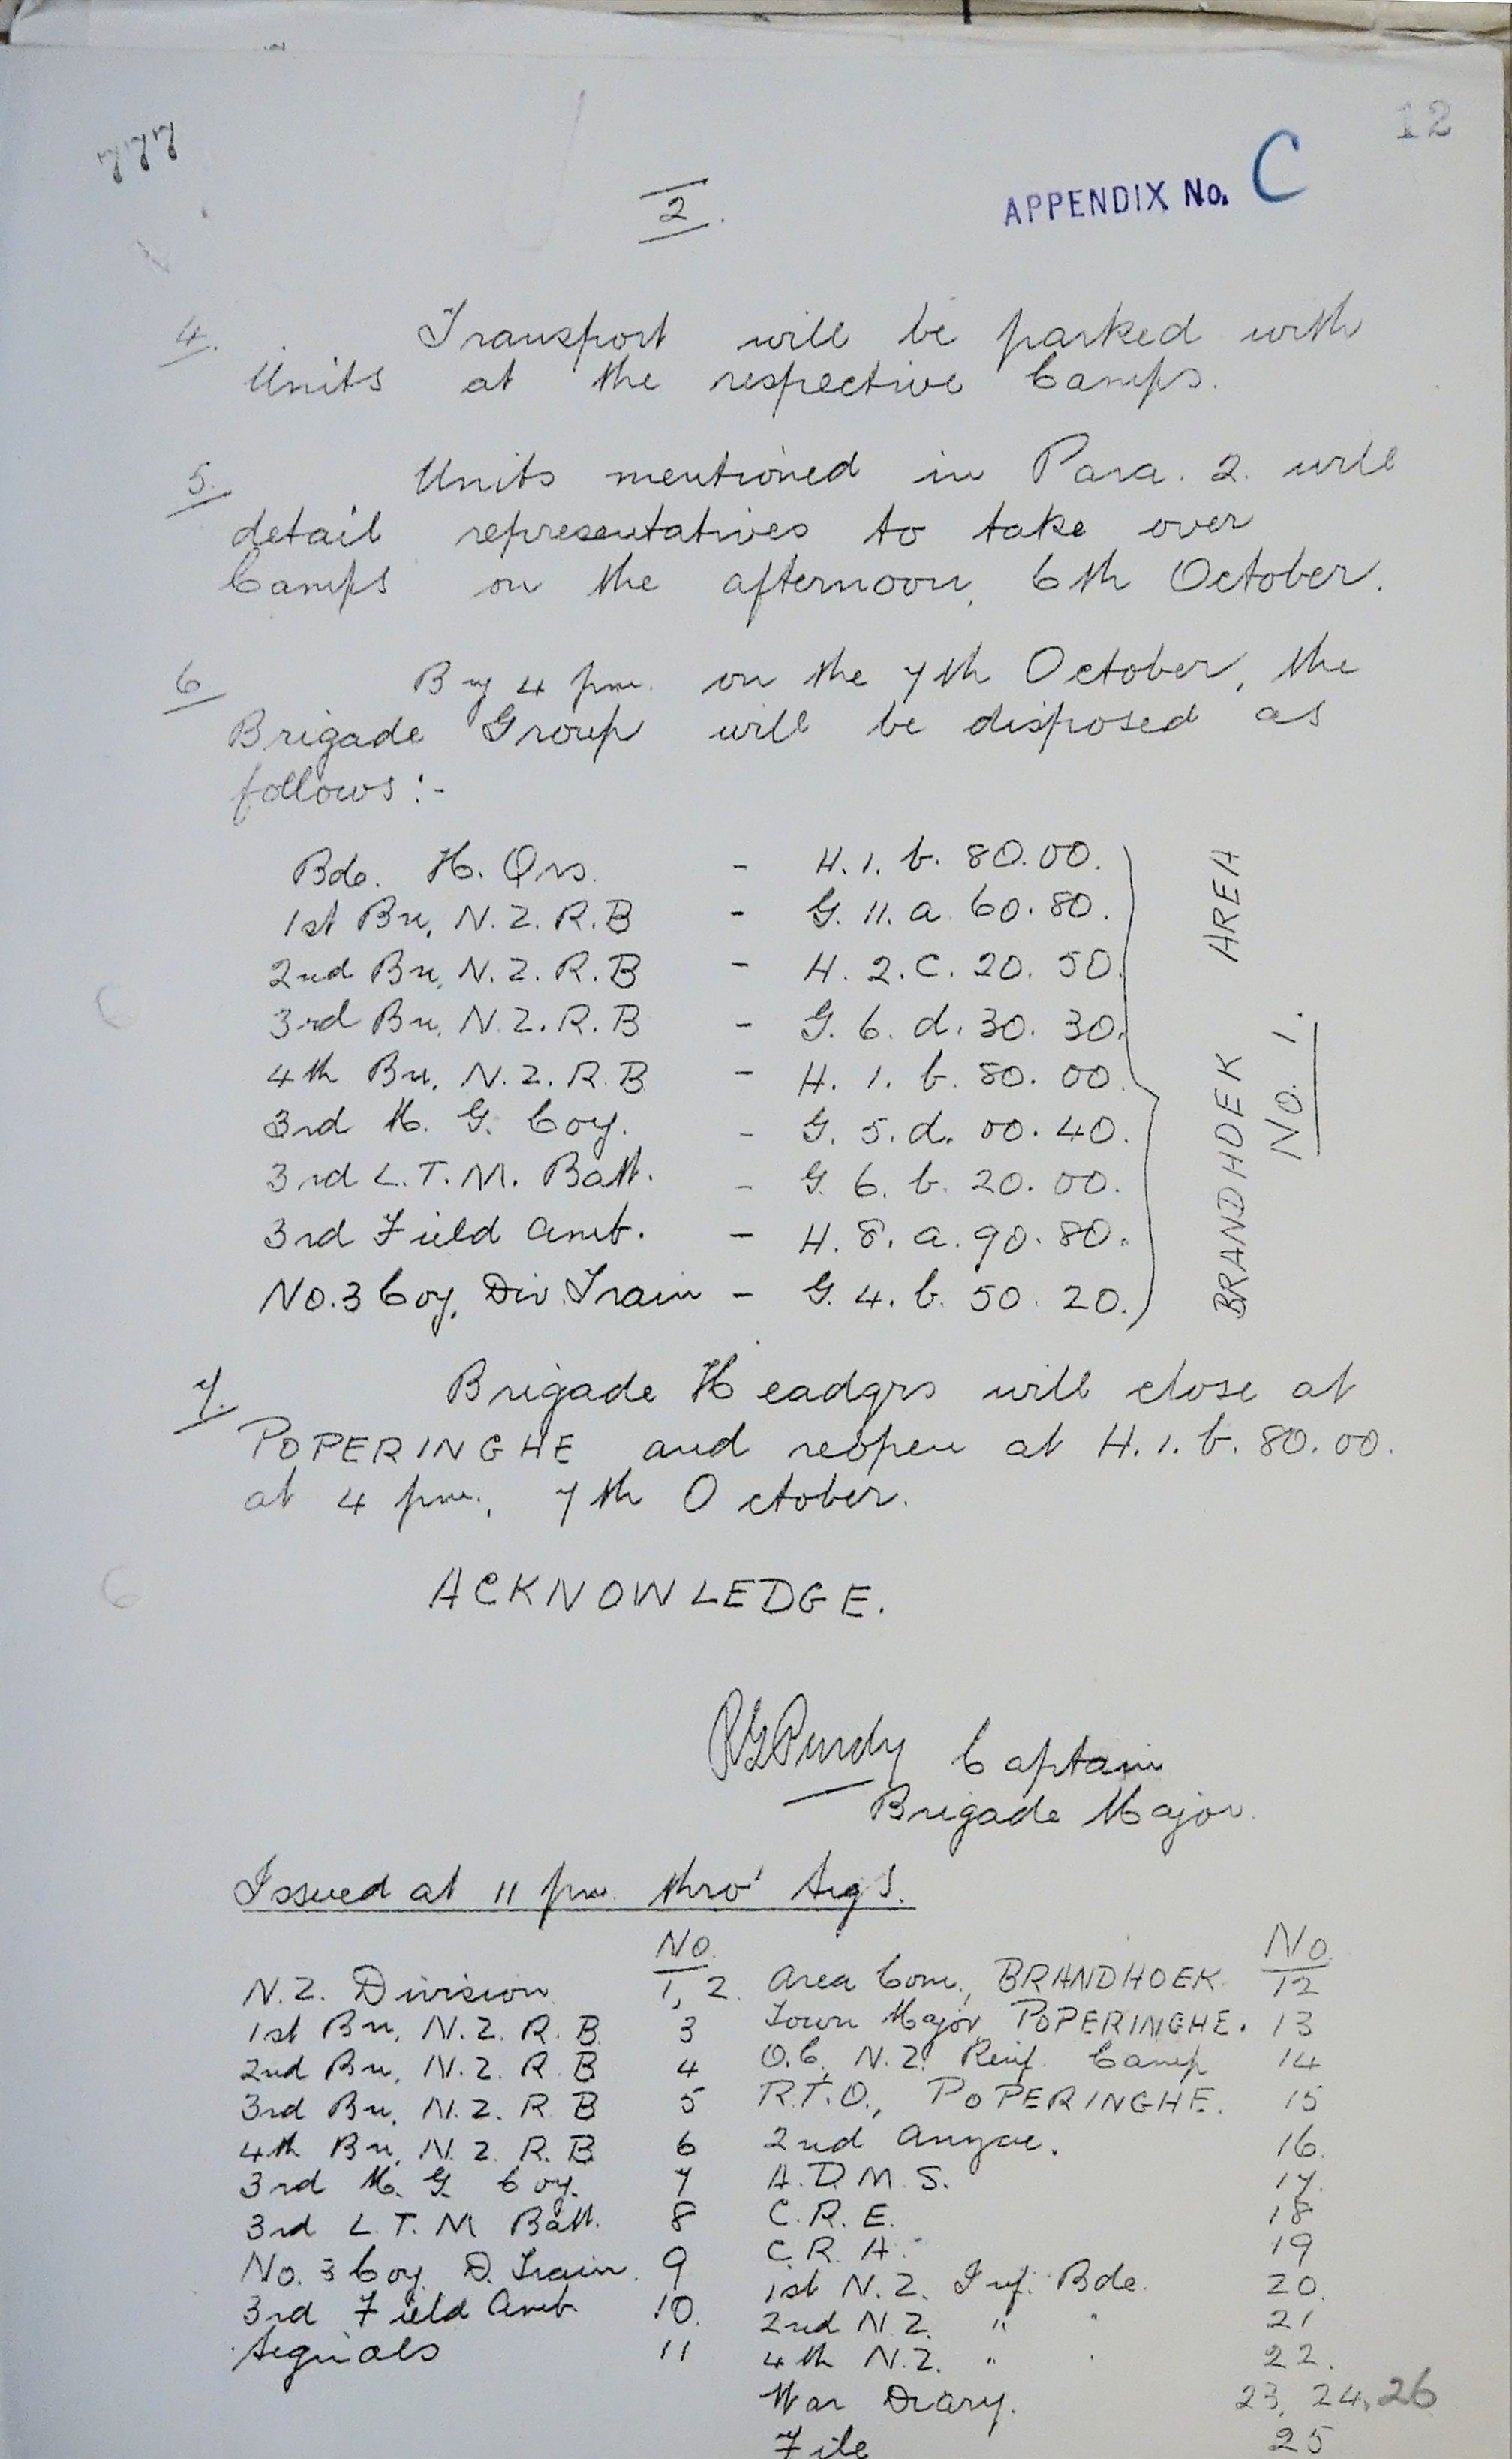 777
12
2.
APPENDIX No. C
4. Transport will be parked with
Units at the respective Camps.
5. Units mentioned in Para. 2. will
detail representatives to take over
Camps on the afternoon, 6th October.
6 By 4 pm. on the 7th October, the
Brigade Group will be disposed as
follows:-
Bde. H. Qrs. - H. 1. b. 80.00.
1st Bn, N.Z.R.B - G. 11. a 60.80.
2nd Bn, N.Z.R.B - H. 2. C. 20. 50.
3rd Bn, N.Z.R.B - G. 6. d. 30. 30.
4th Bn, N.Z.R.B - H. 1. b. 80. 00.
3rd M. G. Coy. - G. 5. d. 00. 40.
3rd L.T.M. Batt. - G. 6. b. 20. 00.
3rd Field Amb. - H. 8. a. 90. 80.
No. 3 Coy, Div. Train - G. 4. b. 50. 20.
BRANDHOEK AREA
No. 1.
7. Brigade Headqrs will close at
POPERINGHE and reopen at H. 1. b. 80.00.
at 4 pm., 7th October.
ACKNOWLEDGE.
RGPurdy Captain
Brigade Major.
Issued at 11 pm. thro' Sigs.
No. No.
N.Z. Division 1, 2. Area Com., BRANDHOEK 12
1st Bn, N.Z.R.B. 3 Town Major, POPERINGHE. 13
2nd Bn, N.Z.R.B 4 O.C, N.Z. Reinf. Camp 14
3rd Bn, N.Z.R B 5 R.T.O., POPERINGHE. 15
4th Bn, N.Z.R.B 6 2nd Anzac. 16.
3rd M. G. Coy. 7 A.D.M.S. 17.
3rd L.T.M Batt. 8 C.R.E. 18
No. 3 Coy. D. Train. 9 C.R.A. 19
3rd Field Amb. 10. 1st N.Z. Inf. Bde. 20.
Signals 11 2nd N.Z. " " 21
4th N.Z. " " 22.
War Diary. 23, 24, 26
File 25